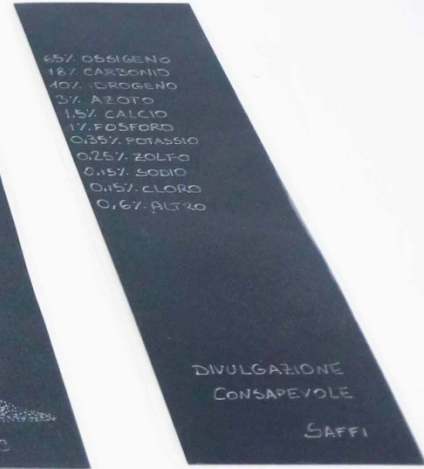 65% OSSIGENO
18% CARBONIO
10% IDROGENO
3% AZOTO
1.5% CALCIO
1% FOSFORO
0,35% POTASSIO
0,25% ZOLFO
0,15% SODIO
0,15% CLORO
0,6% ALTRO
DIVULGAZIONE
CONSAPEVOLE
SAFFI